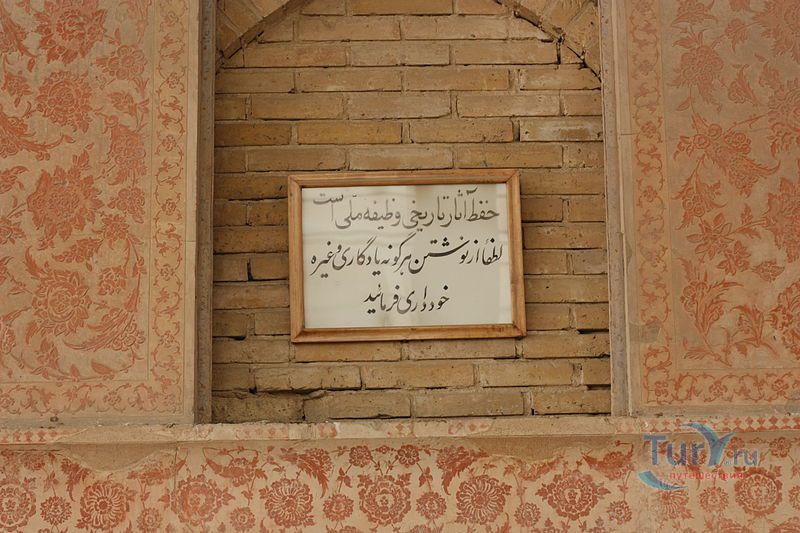 حفظ آثار تاریخی وظیفه ملّی است
لطفاً از نوشتن هرگونه یادگاری و غیره
خودداری فرمائید
TurY.ru
путешествия